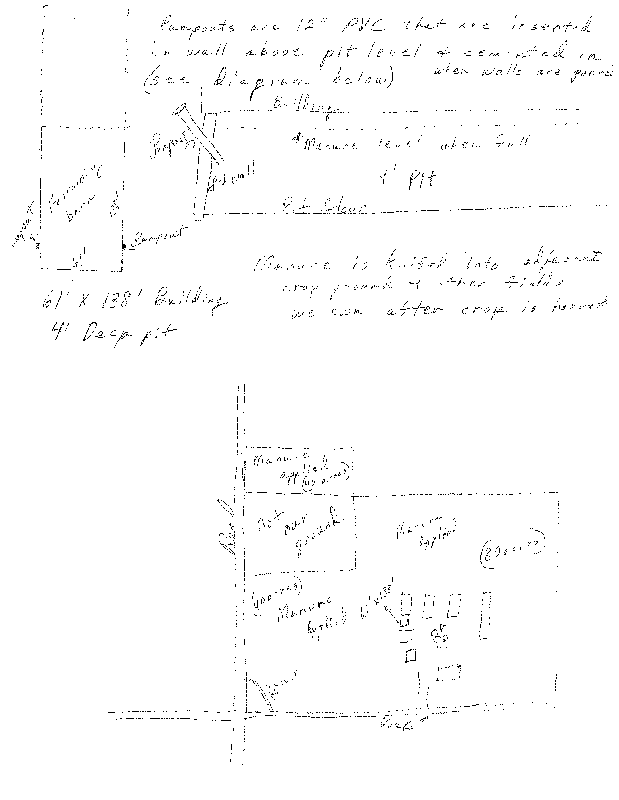 Pumpouts are 12" PVC that are inserted
in wall above pit level & cemented in
(see diagram below) when walls are poured
Building
Pumpout
Manure level when full
Pit wall
4' Pit
Pit floor
61'
Pumpout
61' X 138' Building
4' Deep pit
Manure is knifed into adjacent
crop ground & other fields
we own after crop is harvest
Manure
applied
Road
Not
our
ground
Manure
applied
Manure
applied
61' x 138'
Road